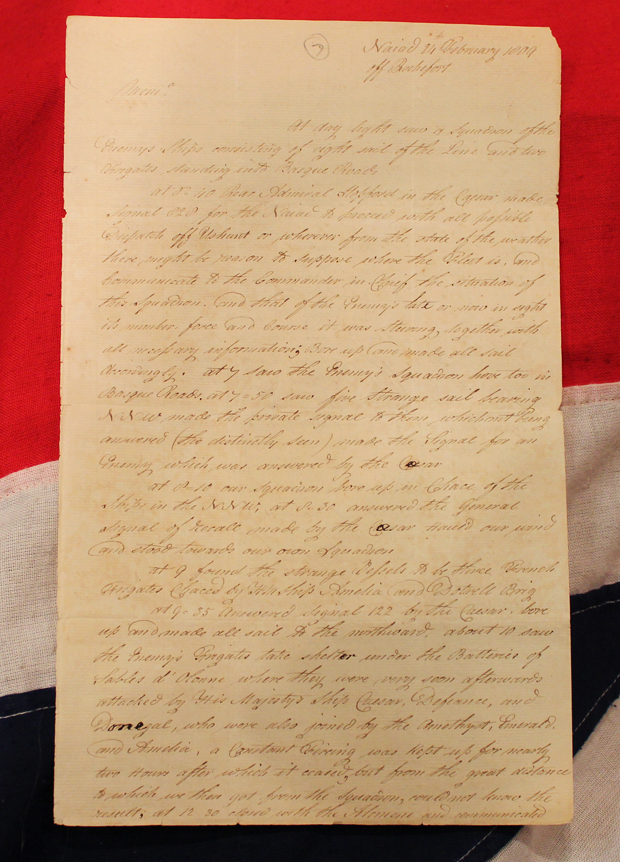 7
Naiad 24th February 1809
off Rochefort
At day light saw a Squadron of the
Enemys Ships consisting of eight sail of the Line and two
Frigates standing into Basque Roads
at Rear Admiral Stopford in the Cæsar made
Signal for the Naiad to proceed with all possible
Dispatch off Ushant or wherever from the state of the weather
there might be reason to suppose where the Fleet is, and
Communicate to the Commander in Chief the situation of
this Squadron, and that of the Enemy's late or now in sight
its number force and Course it was steering, together with
all necessary information; Bore up and made all sail
accordingly. at 7 saw the Enemy's Squadron hove too in
Basque Roads, at 7-50 saw five strange sail bearing
NNW made the private signal to them, which not being
answered (tho distinctly seen) made the Signal for an
Enemy which was answered by the Cæsar
at 8-10 our Squadron bore up in Chace of the
Ships in the NNW, at 8-30 answered the General
Signal of Recall made by the Cæsar hauled our wind
and stood towards our own Squadron
at 9 found the strange Vessels to be three French
Frigates Chaced by His Ships Amelia and Dotrell Brig
at 9-35 Answered Signal 122 by the Caesar. bore
up and made all sail to the northward, about 10 saw
the Enemy's Frigates take shelter under the Batteries of
Sables d'Olonne where they were very soon afterwards
attacked by His Majesty's Ships Caesar, Defiance, and
Donegal, who were also joined by the Amethyst, Emerald
and Amelia, a Constant Fireing was kept up for nearly
two Hours after which it ceased, but from the great distance
to which we then got from the Squadron, could not know the
result; at 12-30 closed with the Alcmene and communicated